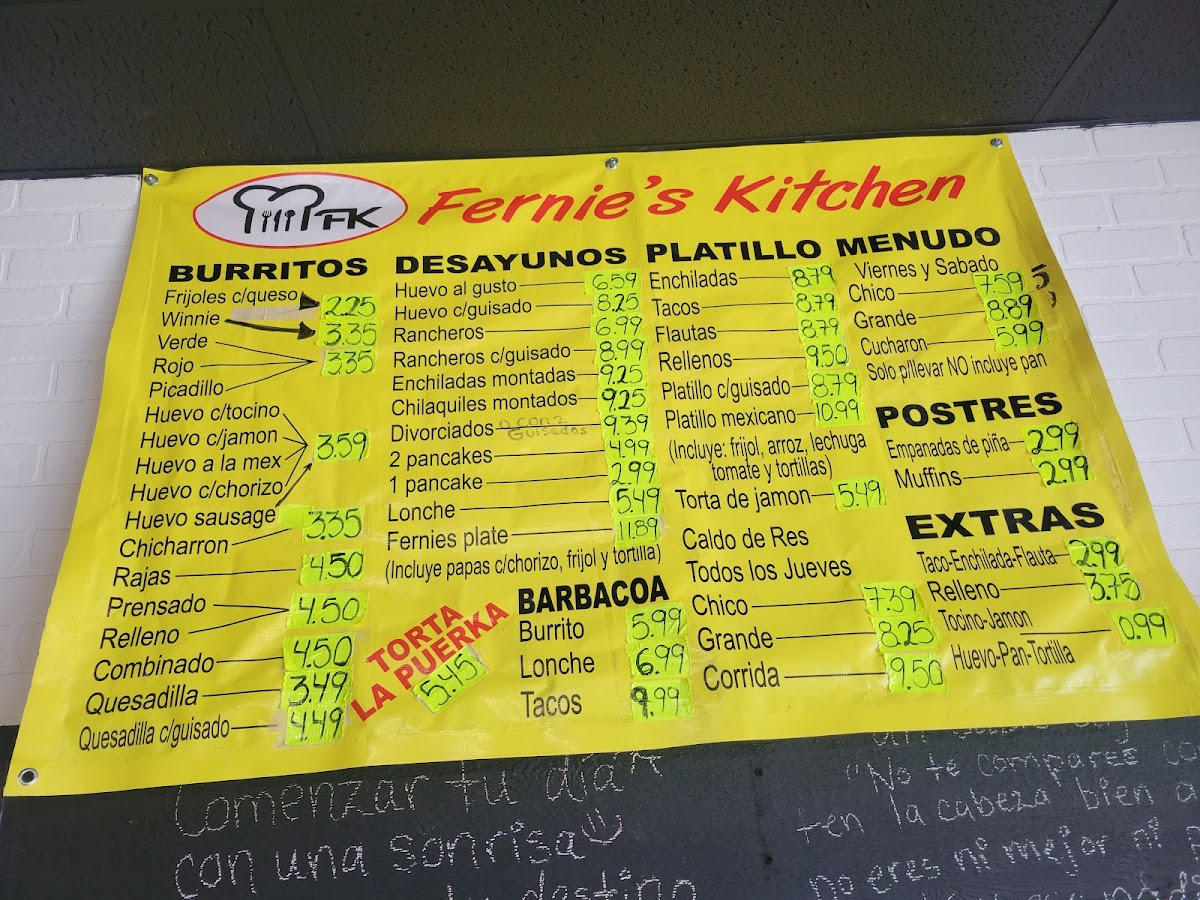 FK
Fernie's Kitchen
BURRITOS
Frijoles c/queso 2.25
Winnie 3.35
Verde
Rojo 3.35
Picadillo
Huevo c/tocino
Huevo c/jamon
Huevo a la mex 3.59
Huevo c/chorizo
Huevo sausage
Chicharron 3.35
Rajas 4.50
Prensado
Relleno 4.50
Combinado 4.50
Quesadilla 3.49
Quesadilla c/guisado 4.49
DESAYUNOS
Huevo al gusto 6.59
Huevo c/guisado 8.25
Rancheros 6.99
Rancheros c/guisado 8.99
Enchiladas montadas 9.25
Chilaquiles montados 9.25
Divorciados o con 2 Guisados 9.39
2 pancakes 4.99
1 pancake 2.99
Lonche 5.49
Fernies plate 11.89
(Incluye papas c/chorizo, frijol y tortilla)
TORTA
LA PUERKA
5.45
BARBACOA
Burrito 5.99
Lonche 6.99
Tacos 9.99
PLATILLO
Enchiladas 8.79
Tacos 8.79
Flautas 8.79
Rellenos 9.50
Platillo c/guisado 8.79
Platillo mexicano 10.99
(Incluye: frijol, arroz, lechuga
tomate y tortillas)
Torta de jamon 5.49
Caldo de Res
Todos los Jueves
Chico 7.39
Grande 8.25
Corrida 9.50
MENUDO
Viernes y Sabado
Chico 7.59
Grande 8.89
Cucharon 5.99
Solo p/llevar NO incluye pan
POSTRES
Empanadas de piña 2.99
Muffins 2.99
EXTRAS
Taco-Enchilada-Flauta 2.99
Relleno 3.75
Tocino-Jamon
0.99
Huevo-Pan-Tortilla
Comenzar tu día
con una sonrisa
destino
"No te compares co
ten la cabeza bien a
no eres ni mejor ni